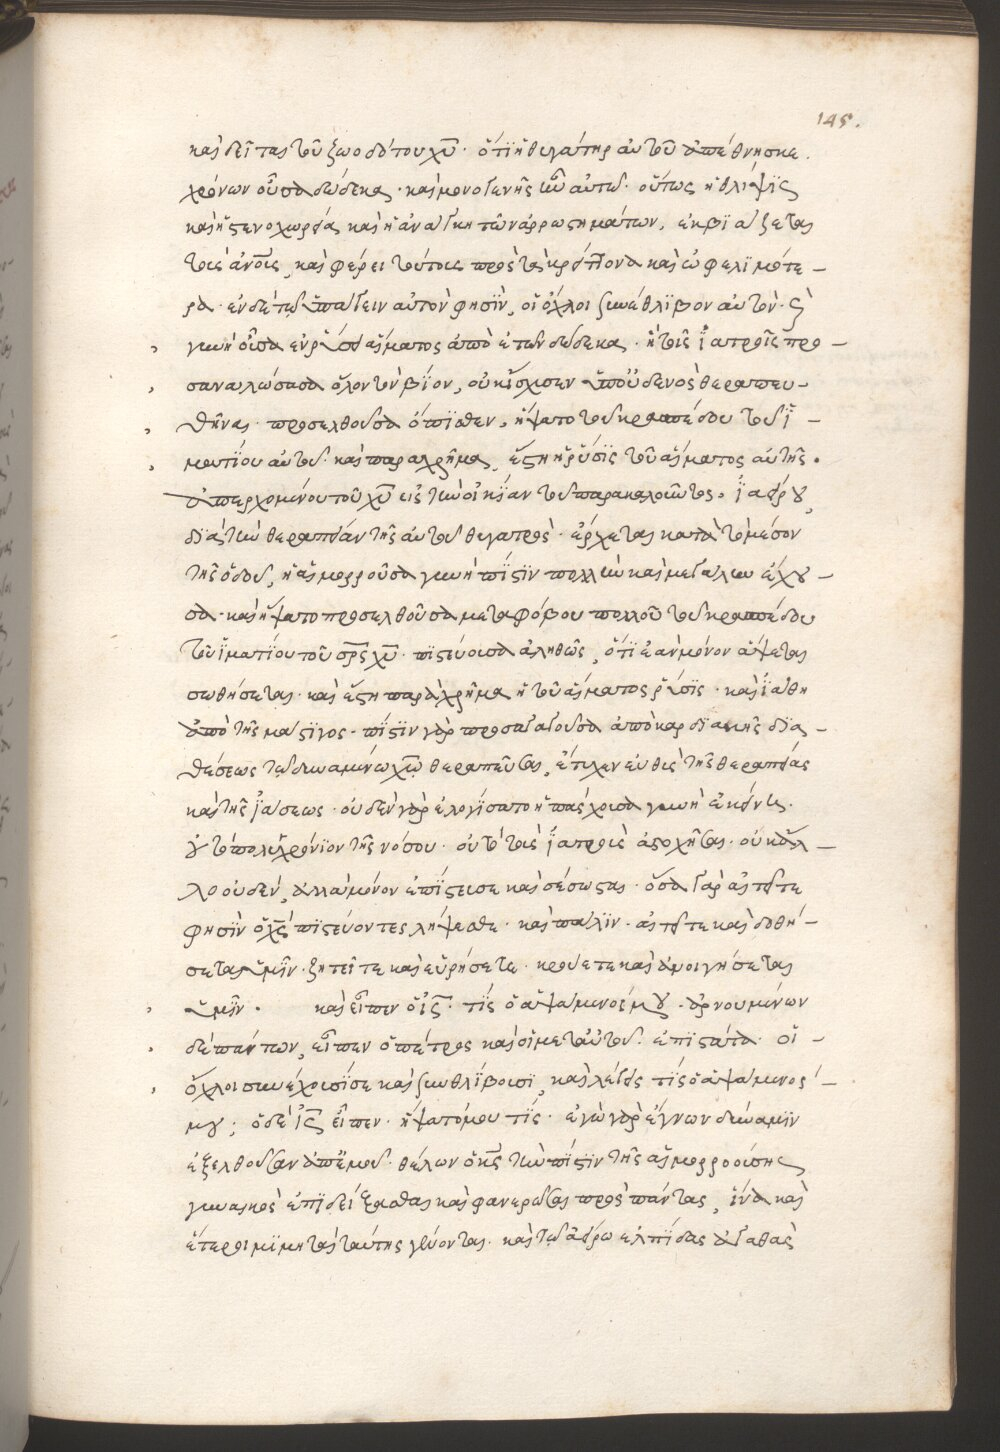 145.
καὶ δεῖται τοῦ ζωοδότου χυ̅· ὅτι ἡ θυγάτηρ αὐτοῦ ἀπέθνησκε.
χρόνων οὖσα δώδεκα· καὶ μονογενὴς ἦν αὐτῶ· οὕτως ἡ θλίψϊς
καὶ ἡ στενοχωρία καὶ ἡ ἀνάγκη τῶν ἀρρωστημάτων, ἐκβϊάζεται
τοὺς ἀνο̅υς, καὶ φέρει τούτους πρὸς τὰ κρείττονα καὶ ὠφελϊμότε-
ρα· ἐν δὲ τῶ ὑπάγειν αὐτὸν φησϊν, οἱ ὄχλοι συνέθλϊβον αὐτόν· καὶ
γυνὴ οὖσα ἐν ῥύσει αἵματος ἀπὸ ἐτῶν δώδεκα· ἥτις ἰατροῖς προ-
σαναλώσασα ὅλον τὸν βίον, οὐκ ἴσχυσεν ὑπ' οὐδενὸς θεραπευ-
θῆναι· προσελθοῦσα ὄπϊσθεν, ἥψατο τοῦ κρασπέδου τοῦ ἱ-
ματίου αὐτοῦ· καὶ παραχρῆμα, ἔστη ἡ ῥύσϊς τοῦ αἵματος αὐτῆς·
ἀπερχομένου τοῦ χυ̅ εἰς τὴν οἰκίαν τοῦ παρακαλοῦντος ἰαείρου,
διὰ τὴν θεραπείαν τῆς αὐτοῦ θυγατρὸς· ἔρχεται κατὰ τὸ μέσον
τῆς ὁδοῦ, ἡ αἱμορροοῦσα γυνὴ πίστϊν πολλὴν καὶ μεγάλην ἔχου-
σα· καὶ ἥψατο προσελθοῦσα μετὰ φόβου πολλοῦ τοῦ κρασπέδου
τοῦ ἱματίου τοῦ σρ̅ς χυ̅· πϊστεύουσα ἀληθῶς, ὅτι ἐὰν μόνον ἅψεται
σωθήσεται· καὶ ἔστη παραχρῆμα ἡ τοῦ αἵματος ῥύσϊς· καὶ ἰάθη
ἀπὸ τῆς μάστϊγος· πίστϊν γὰρ προσαγαγοῦσα ἀπὸ καρδϊακῆς δϊα-
θέσεως τῶ δυναμένω χω̅ θεραπεῦσαι, ἔτυχεν εὐθὺς τῆς θεραπείας
καὶ τῆς ἰάσεως· οὐδὲν γὰρ ἐλογίσατο ἡ πάσχουσα γυνὴ ἐκείνη·
οὐ τὸ πολυχρόνϊον τῆς νόσου· οὐ τὸ τοὺς ἰατροὺς ἀστοχῆσαι· οὐκ ἄλ-
λο οὐδέν, ἀλλὰ μόνον ἐπίστευσε καὶ σέσωσται· ὅσα γὰρ αἰτεῖτε
φησϊν ὁ χς̅ πϊστεύοντες λήψεσθε· καὶ πάλϊν· αἰτεῖτε καὶ δοθή-
σεται ὑμῖν· ζητεῖτε καὶ εὑρήσετε· κρούετε καὶ ἀνοιγήσεται
ὑμῖν· καὶ εἶπεν ὁ ις̅· τίς ὁ ἁψάμενός μου· ἀρνουμένων
δὲ πάντων, εἶπεν ὁ πέτρος καὶ οἱ μετ' αὐτοῦ· ἐπϊστάτα· οἱ
ὄχλοι συνέχουσί σε καὶ συνθλίβουσι, καὶ λέγεις τίς ὁ ἁψάμενός-
μου; ὁ δὲ ις̅ εἶπεν· ἥψατό μου τίς· ἐγὼ γὰρ ἔγνων δύναμϊν
ἐξελθοῦσαν ἀπ' ἐμοῦ· θέλων ὁ κς̅ τὴν πίστϊν τῆς αἱμορροούσης
γυναικὸς ἐπϊδείξασθαι καὶ φανερῶσαι πρὸς πάντας, ἵνα καὶ
ἕτεροι μϊμηταὶ ταύτης γένονται· καὶ τῶ ἰαείρω ἐλπίδας ἀγαθὰς